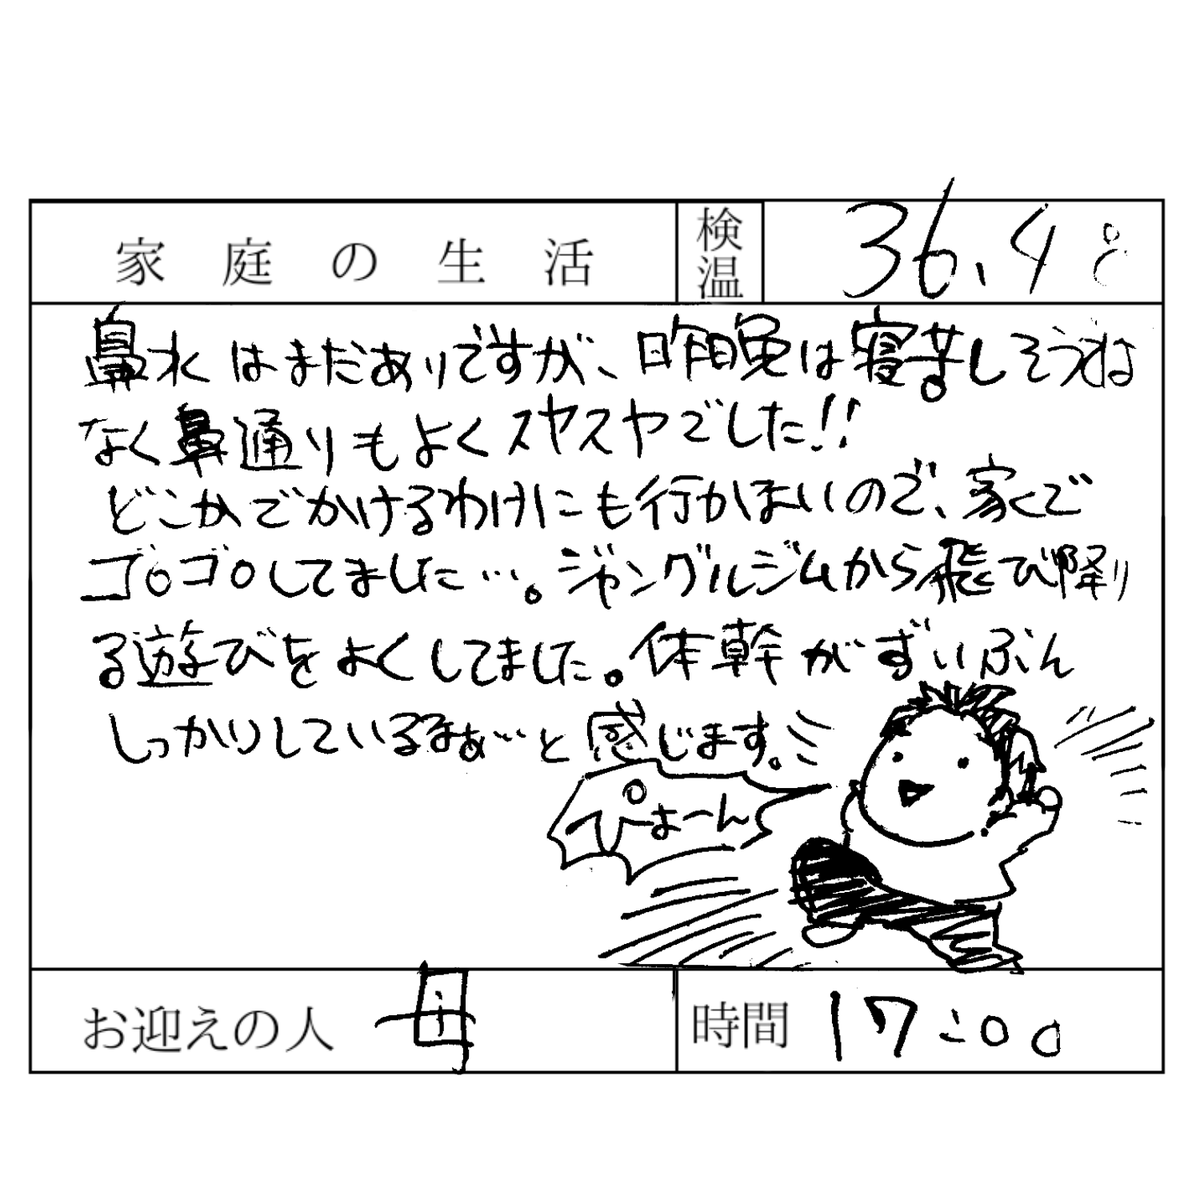 家庭の生活
検温
36.4℃
鼻水はまだありですが、昨晩は寝苦しそうでは
なく鼻通りもよくスヤスヤでした!!
どこかでかけるわけにも行かないので、家で
ゴロゴロしてました…。ジャングルジムから飛び降り
る遊びをよくしてました。体幹がずいぶん
しっかりしているなぁ…と感じます。
ぴょーん
お迎えの人 母
時間 17:00